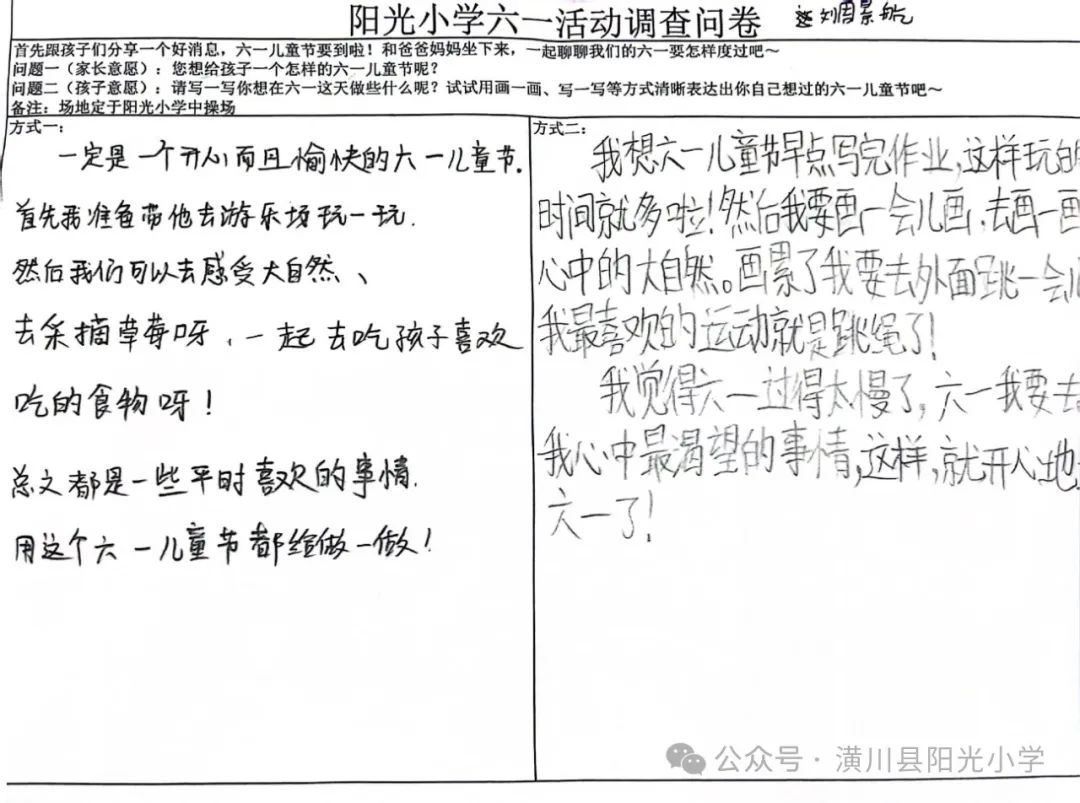 阳光小学六一活动调查问卷
刘景航
首先跟孩子们分享一个好消息，六一儿童节要到啦！和爸爸妈妈坐下来，一起聊聊我们的六一要怎样度过吧~
问题一（家长意愿）：您想给孩子一个怎样的六一儿童节呢？
问题二（孩子意愿）：请写一写你想在六一这天做些什么呢？试试用画一画、写一写等方式清晰表达出你自己想过的六一儿童节吧~
备注：场地定于阳光小学中操场
方式一：
一定是一个开心而且愉快的六一儿童节.
首先我准备带他去游乐场玩一玩.
然后我们可以去感受大自然、
去采摘草莓呀、一起去吃孩子喜欢
吃的食物呀！
总文都是一些平时喜欢的事情.
用这个六一儿童节都给做一做！
方式二：
我想六一儿童节早点写完作业,这样玩的
时间就多啦!然后我要画一会儿画,去画一画
心中的大自然。画累了我要去外面跳一会儿
我最喜欢的运动就是跳绳了!
我觉得六一过得太慢了,六一我要去
我心中最渴望的事情,这样,就开心地
六一了!
公众号·潢川县阳光小学